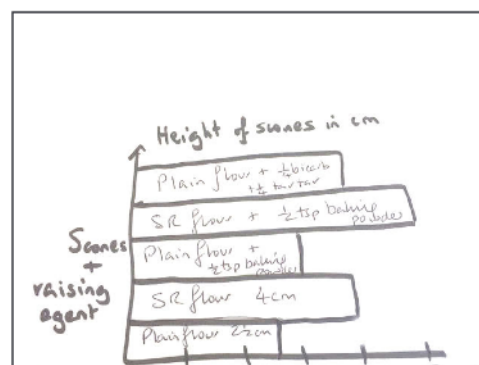 Height of scones in cm
Plain flour + ¼ bicarb
+ ¼ tartar
SR flour + ½ tsp baking
powder
Scones
+
raising
agent
Plain flour +
½ tsp baking
powder
SR flour 4cm
Plain flour 2½cm